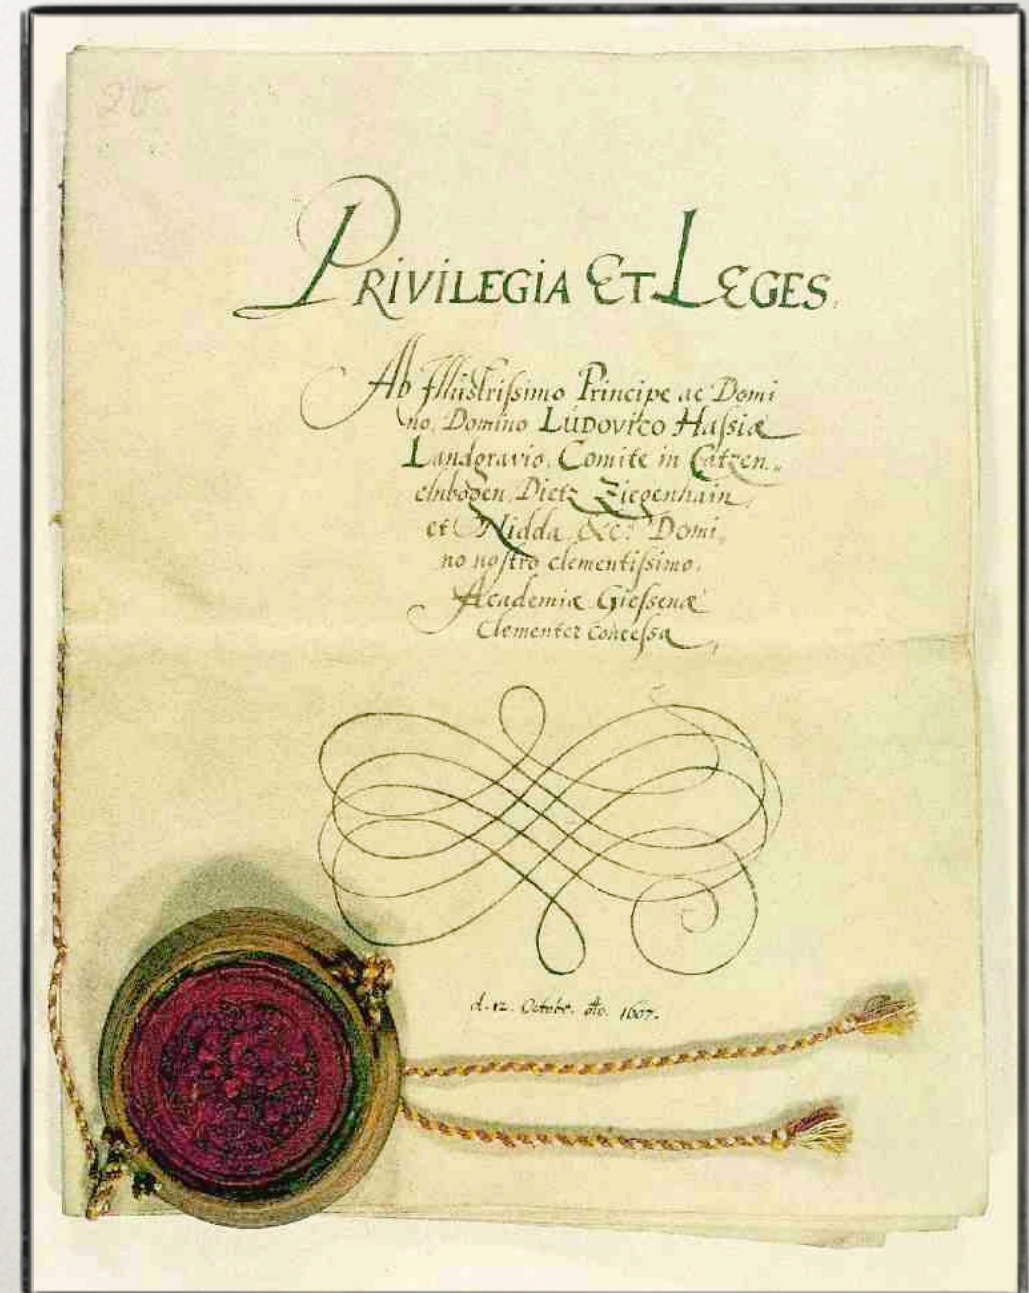 PRIVILEGIA ET LEGES.
Ab Illustriſsimo Principe ac Domi
no, Domino LUDOVICO Haſsiæ
Landgravio, Comite in Catzen„
elnbogen, Dietz Ziegenhain,
et Nidda &c: Domi„
no noſtro clementiſsimo.
Academiæ Gieſsenæ
Clementer conceſsa,
d. 12. Octobr. Ao. 1607.